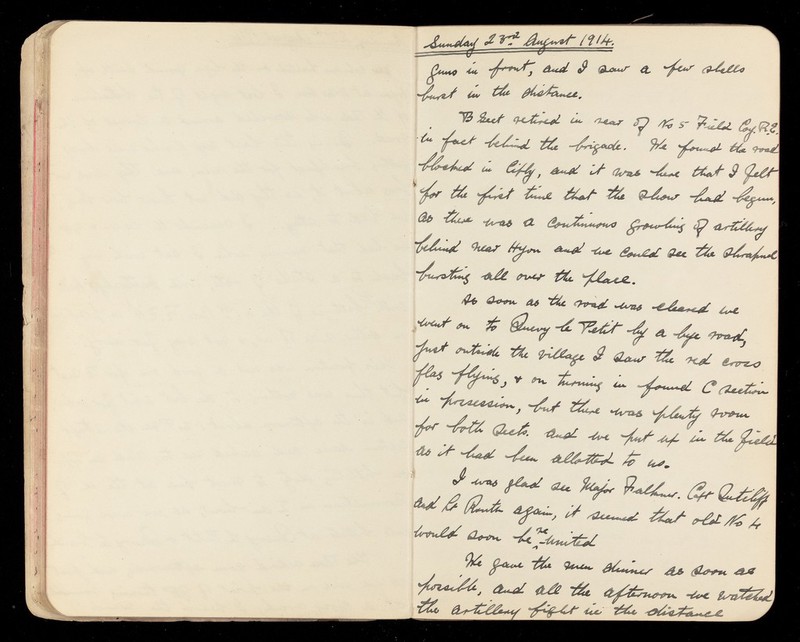 Sunday 23rd August 1914.
guns in front, and I saw a few shells
burst in the distance.
B Sect retired in rear of No 5 Field Coy. R.E.
in fact behind the brigade. We found the road
blocked in Ciply, and it was here that I felt
for the first time that the show had begun,
as there was a continuous growling of artillery
behind near Hyon and we could see the shrapnel
bursting all over the place.
As soon as the road was cleared we
went on to Quevy le Petit by a bye road,
just outside the village I saw the red cross
flag flying, & on turning in found C section
in possession, but there was plenty room
for both sects. and we put up in the field
as it had been allotted to us.
I was glad see Major Falkner. Capt Sutcliff
and Lt Routh again, it seemed that old No 4
would soon be re-united
We gave the men dinner as soon as
possible, and all the afternoon we watched
the artillery fight in the distance